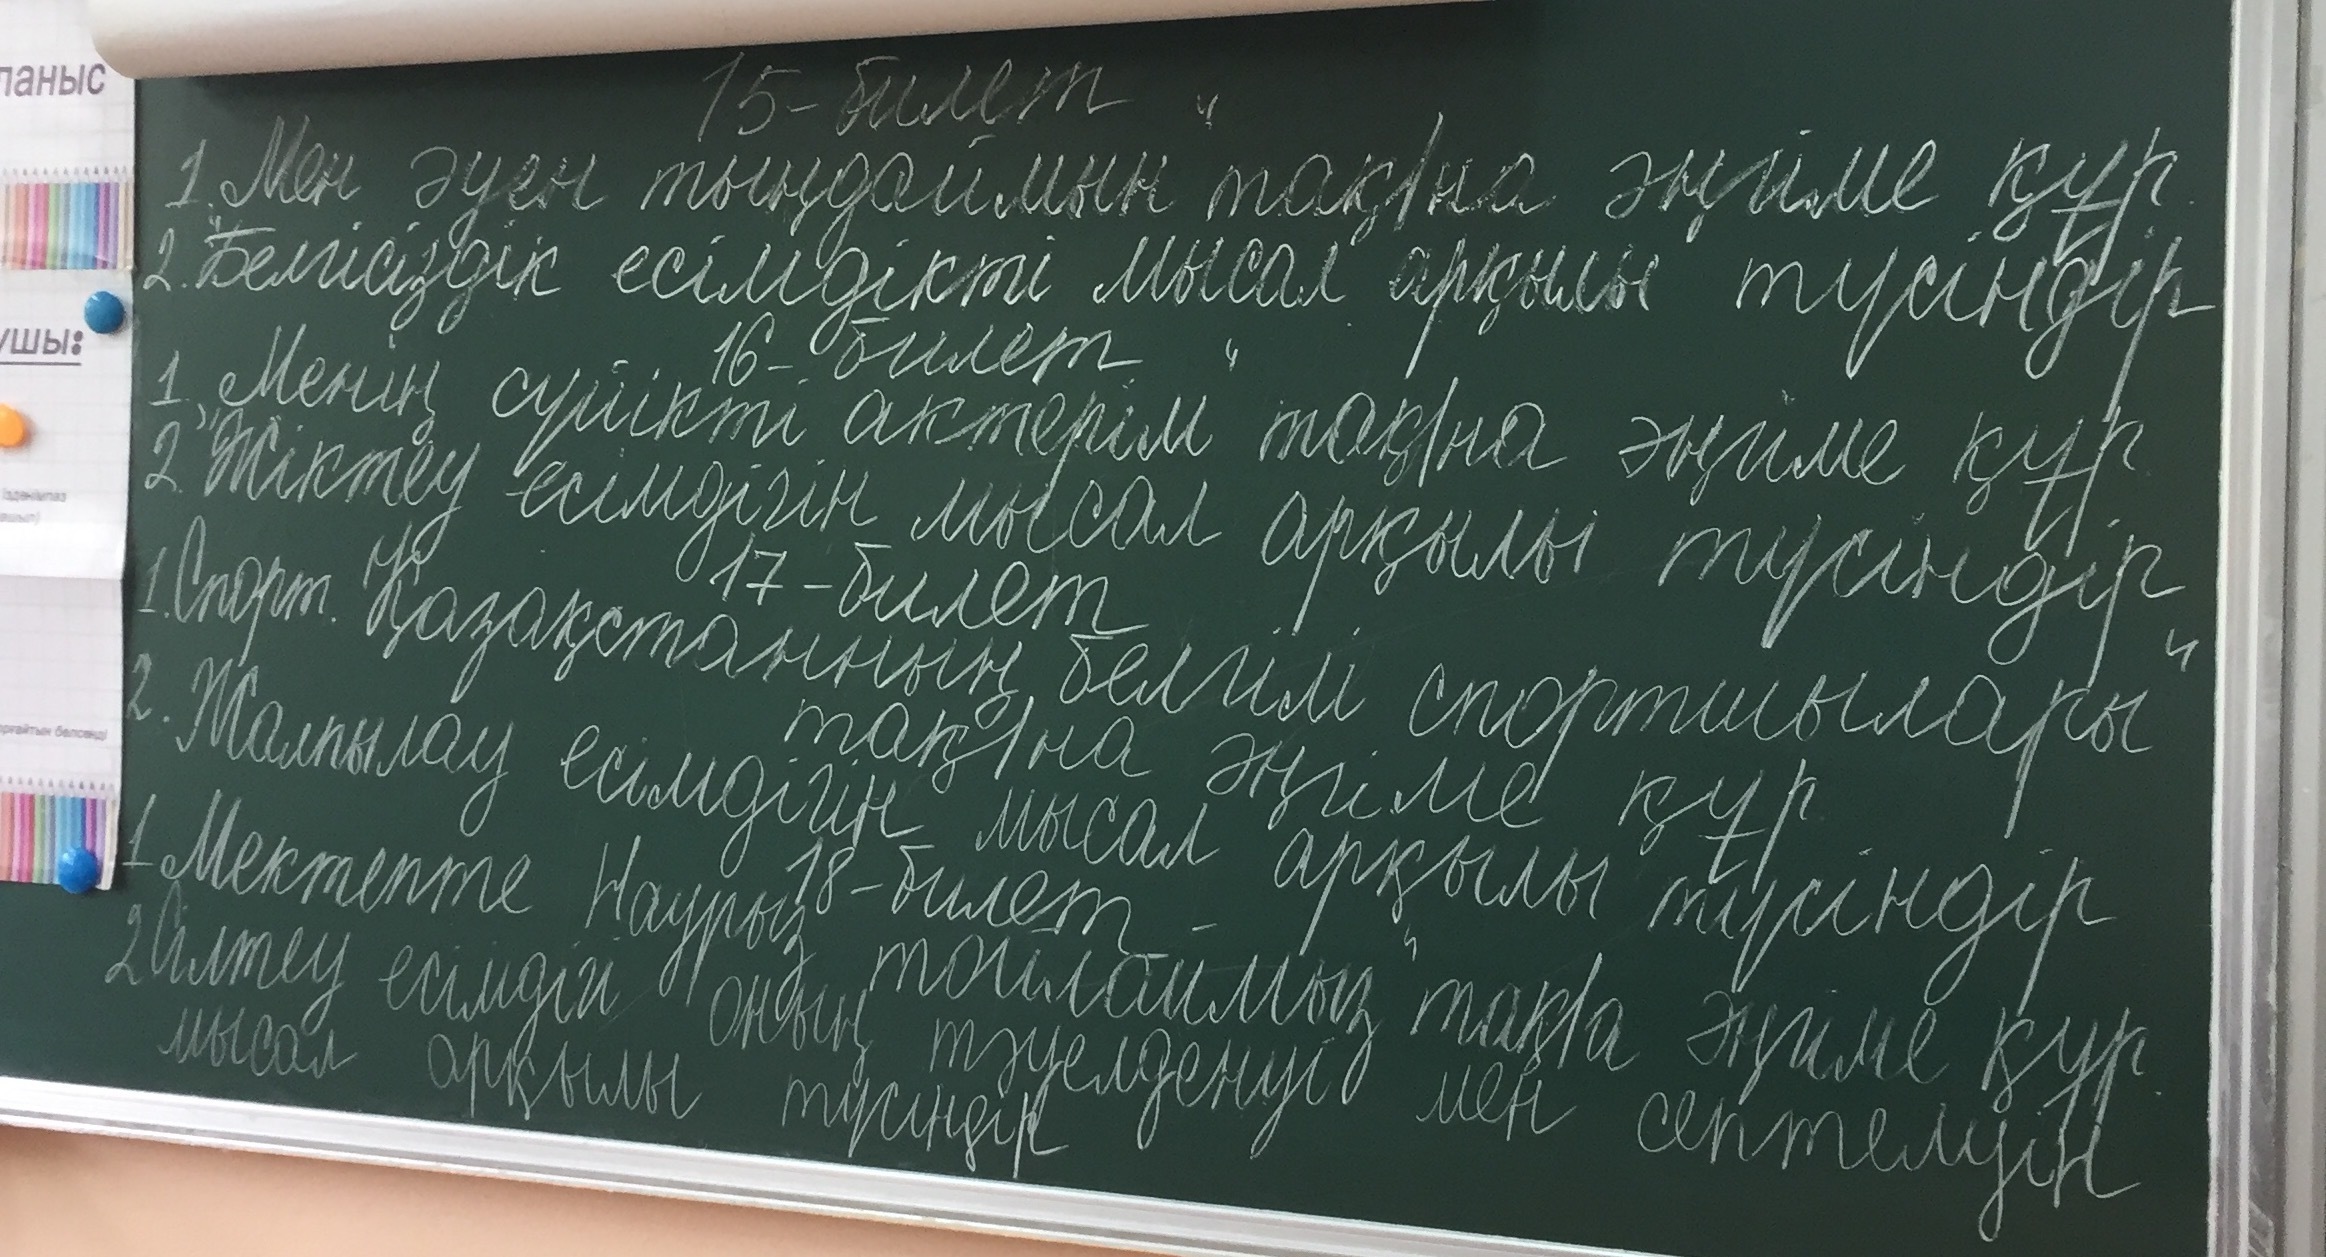 ланыс
ушы:
15-билет
1. "Мен әуен тыңдаймын" тақ/на әңгіме құр.
2. Белгісіздік есімдікті мысал арқылы түсіндір
16-билет
1. "Менің сүйікті актерім" тақ/на әңгіме құр.
2. Жіктеу есімдігін мысал арқылы түсіндір
17-билет
1. Спорт. "Қазақстанның белгілі спортшылары"
тақ/на әңгіме құр
2. Жалпылау есімдігін мысал арқылы түсіндір
18-билет
1. Мектепте Наурыз тойлаймыз" тақ/а әңгіме құр.
2 Сілтеу есімдігі оның тәуелденуі мен септелуін
мысал арқылы түсіндір